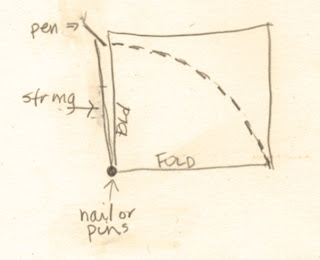 pen
string
FOLD
FOLD
nail or
pins